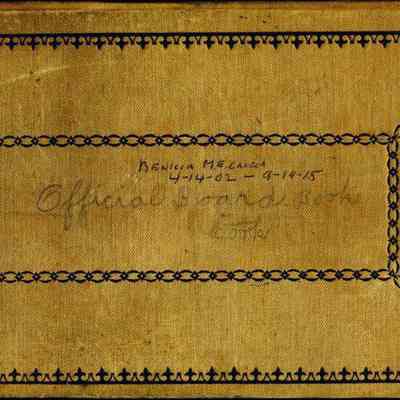 BENICIA M.E. CHURCH
4-14-02 - 9-14-15
Official Board Book